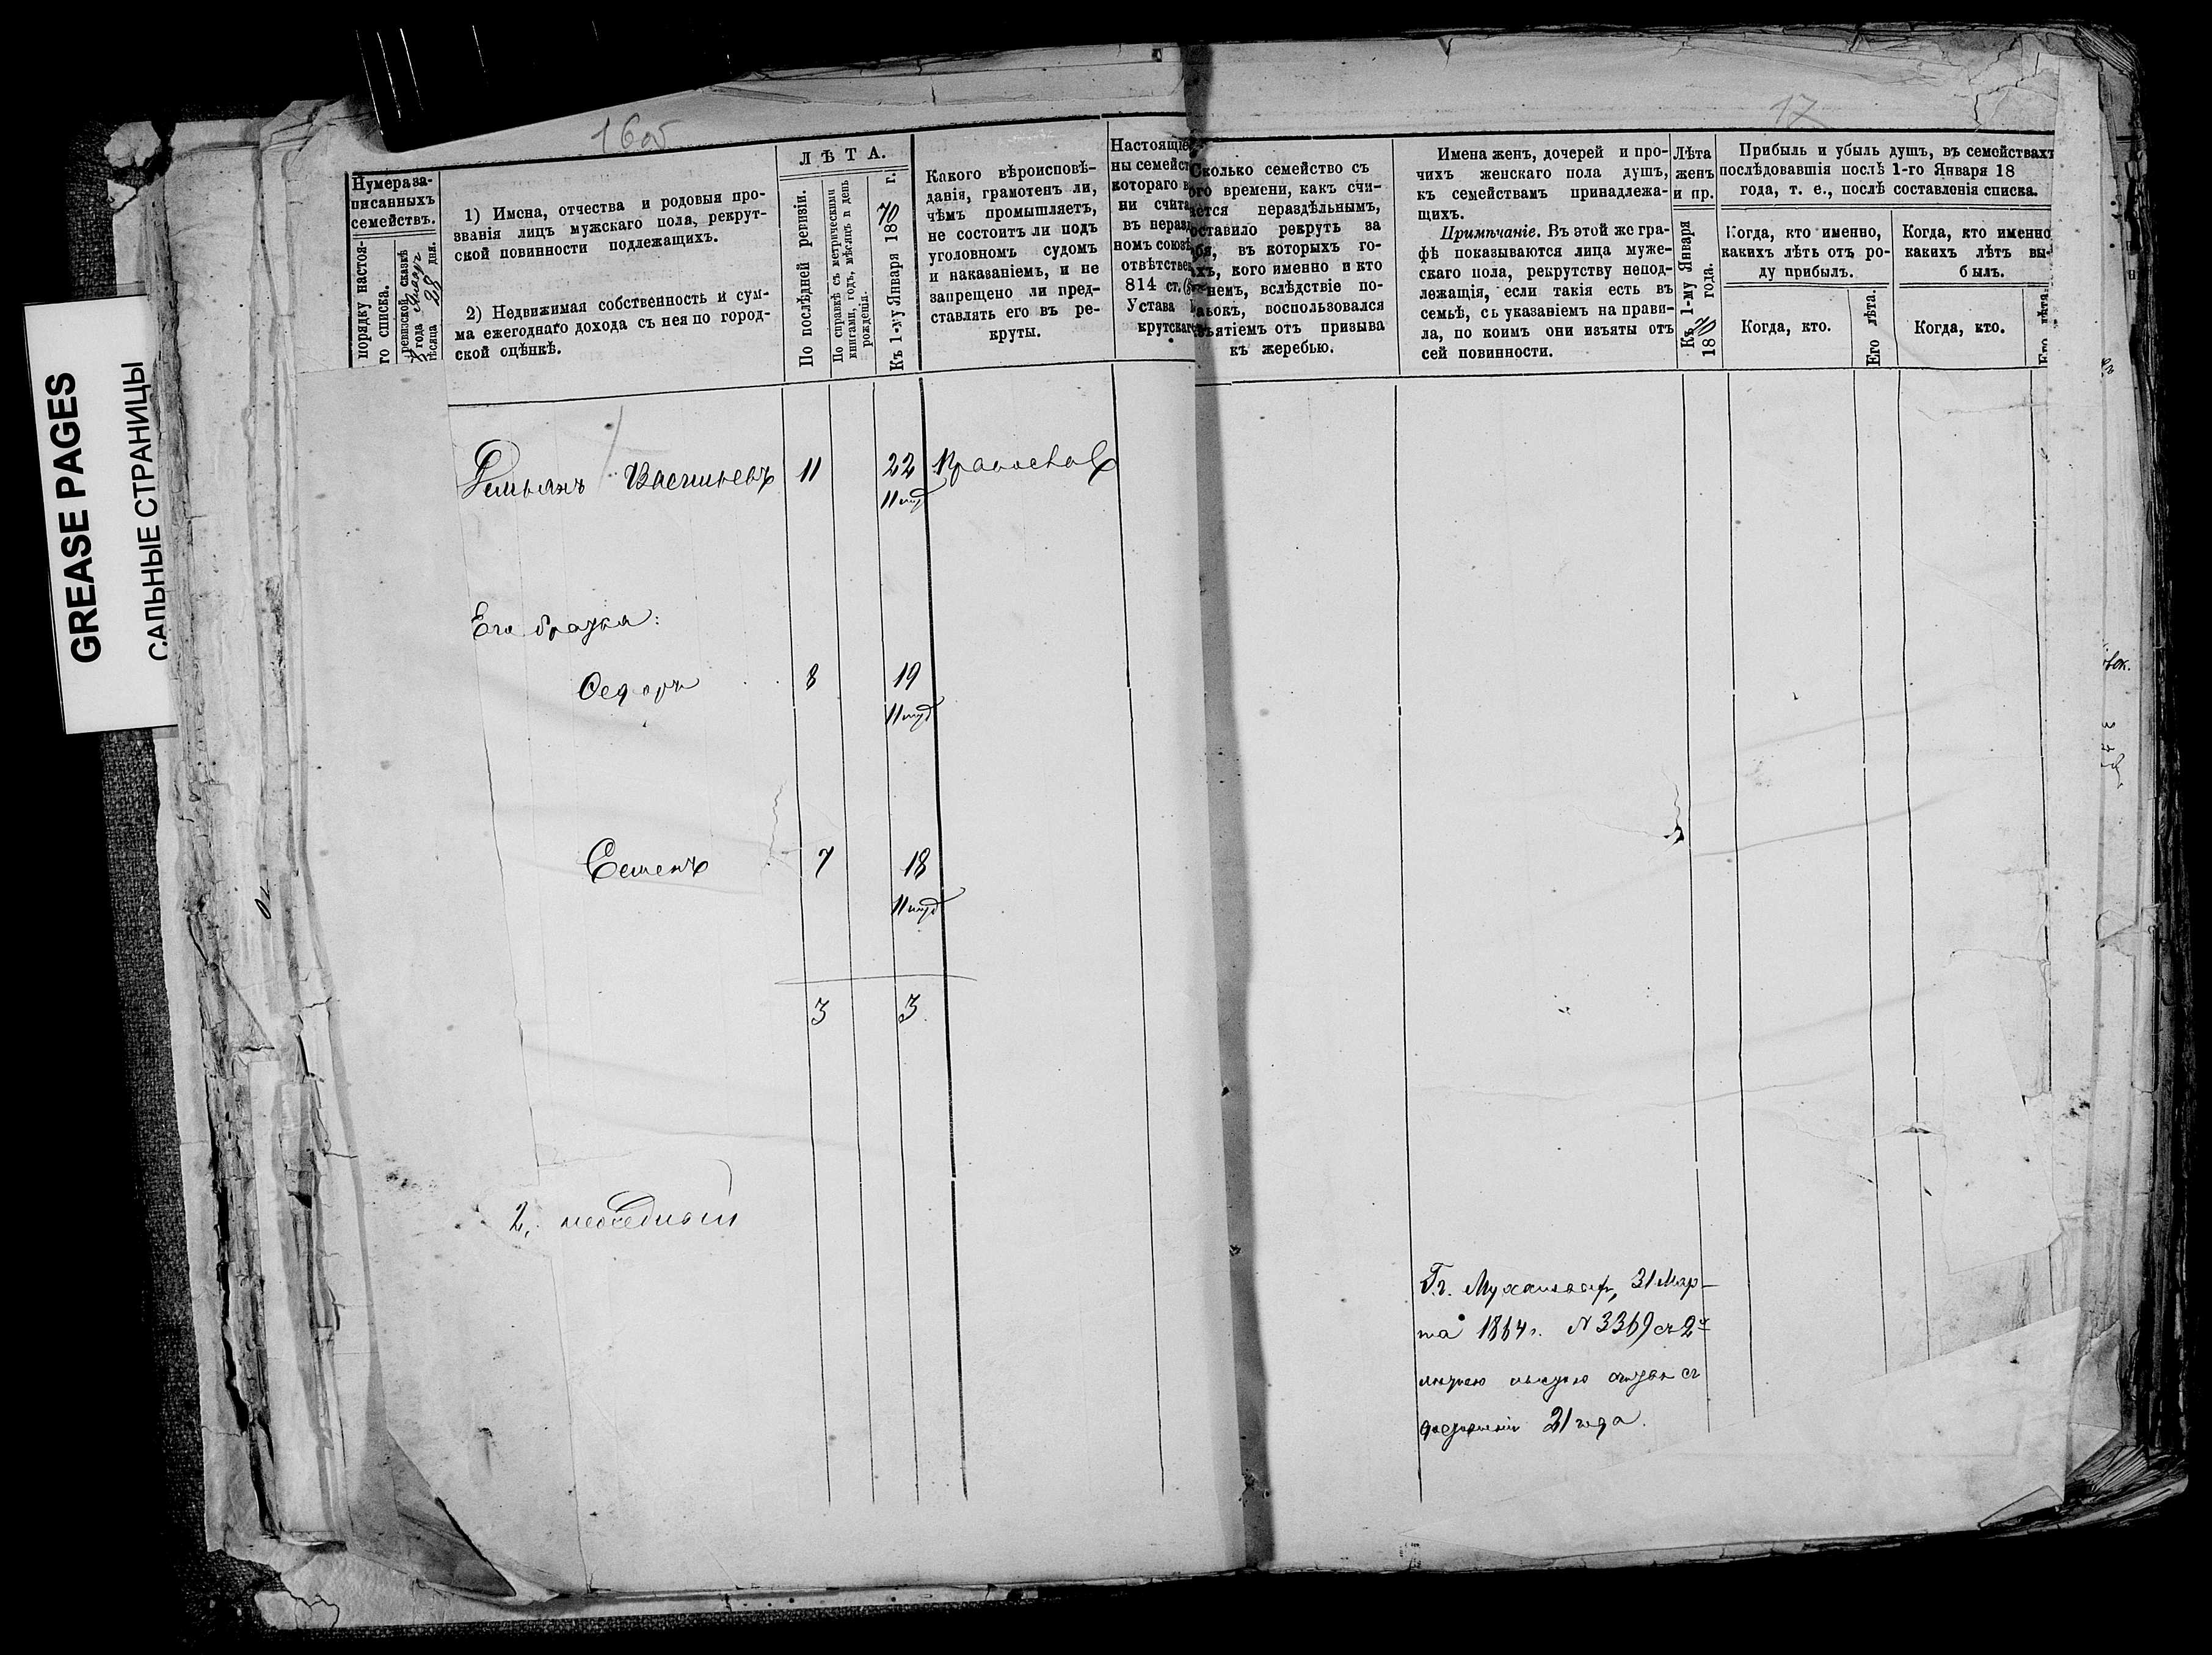 GREASE PAGES
САЛЬНЫЕ СТРАНИЦЫ
16об
17
Нумера за-
писанныхъ
семействъ.
порядку настоя-
го списка.
ревизской сказкѣ
года
28 дня.
1) Имена, отчества и родовыя про-
званія лицъ мужскаго пола, рекрут-
ской повинности подлежащихъ.
2) Недвижимая собственность и сум-
ма ежегоднаго дохода съ нея по город-
ской оцѣнкѣ.
ЛѢТА.
По послѣдней ревизіи.
По справкѣ съ метрическими
книгами, годъ, мѣсяцъ и день
рожденія.
Къ 1-му Января 1870 г.
Какого вѣроисповѣ-
данія, грамотенъ ли,
чѣмъ промышляетъ,
не состоитъ ли подъ
уголовномъ судомъ
и наказаніемъ, и не
запрещено ли пред-
ставлять его въ ре-
круты.
Настоящіе
ны семейст
котораго в
ни счита
въ нераз
номъ союз
отвѣтствен
814 ст.
Устава
крутскаго
Сколько семейство съ
ого времени, какъ счи-
ается нераздѣльнымъ,
оставило рекрутъ за
бя, въ которыхъ го-
ахъ, кого именно и кто
немъ, вслѣдствіе по-
ьокъ, воспользовался
зъятіемъ отъ призыва
къ жеребью.
Имена женъ, дочерей и про-
чихъ женскаго пола душъ,
къ семействамъ принадлежа-
щихъ.
Примѣчаніе. Въ этой же гра-
фѣ показываются лица муже-
скаго пола, рекрутству непод-
лежащія, если такія есть въ
семьѣ, съ указаніемъ на прави-
ла, по коимъ они изъяты отъ
сей повинности.
Лѣта
женъ
и пр.
Къ 1-му Января
1870 года.
Прибыль и убыль душъ, въ семействахъ
послѣдовавшія послѣ 1-го Января 18
года, т. е., послѣ составленія списка.
Когда, кто именно,
какихъ лѣтъ отъ ро-
ду прибылъ.
Когда, кто именно
какихъ лѣтъ вы-
былъ.
Когда, кто.
Его лѣта.
Когда, кто.
Его лѣта.
Демьянъ Васильевъ 11 22 Православ
Его братья:
Федоръ 8 19
Семенъ 7 18
3 3
2,
31 Мар-
та 1864 г. N 3369
21 года.